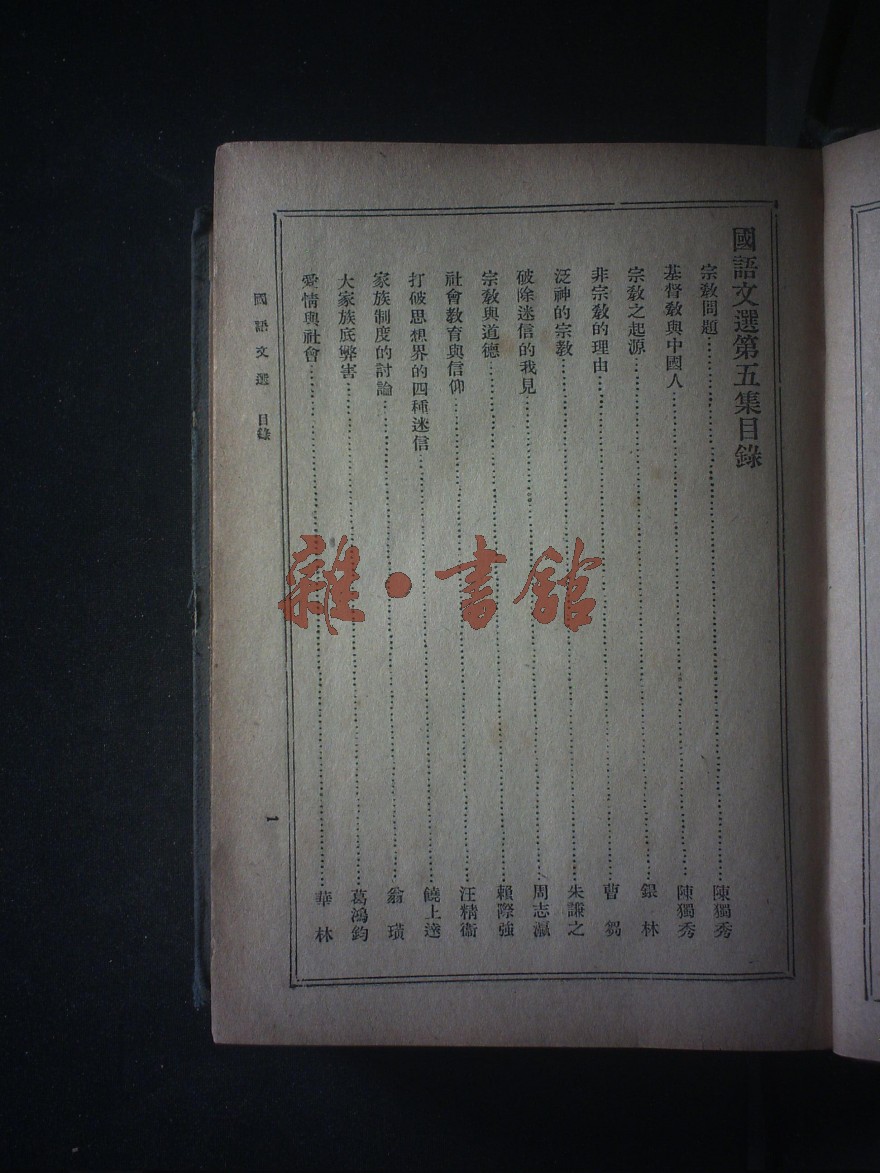 國語文選第五集目錄
宗敎問題……陳獨秀
基督敎與中國人……陳獨秀
宗敎之起源……銀林
非宗敎的理由……曹芻
泛神的宗敎……朱謙之
破除迷信的我見……周志瀛
宗敎與道德……賴際強
社會敎育與信仰……汪精衞
打破思想界的四種迷信……饒上達
家族制度的討論……翁璜
大家族底弊害……葛鴻鈞
愛情與社會……華林
國語文選 目錄
1
雜·書館